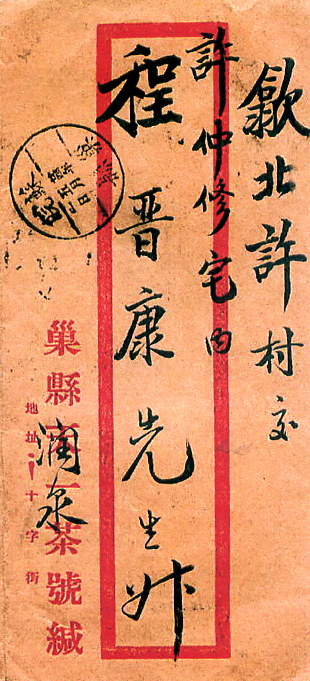 歙北許村交
許仲修宅内
程晋康先生
巢縣
茶號緘
潤泉
地址
十字街